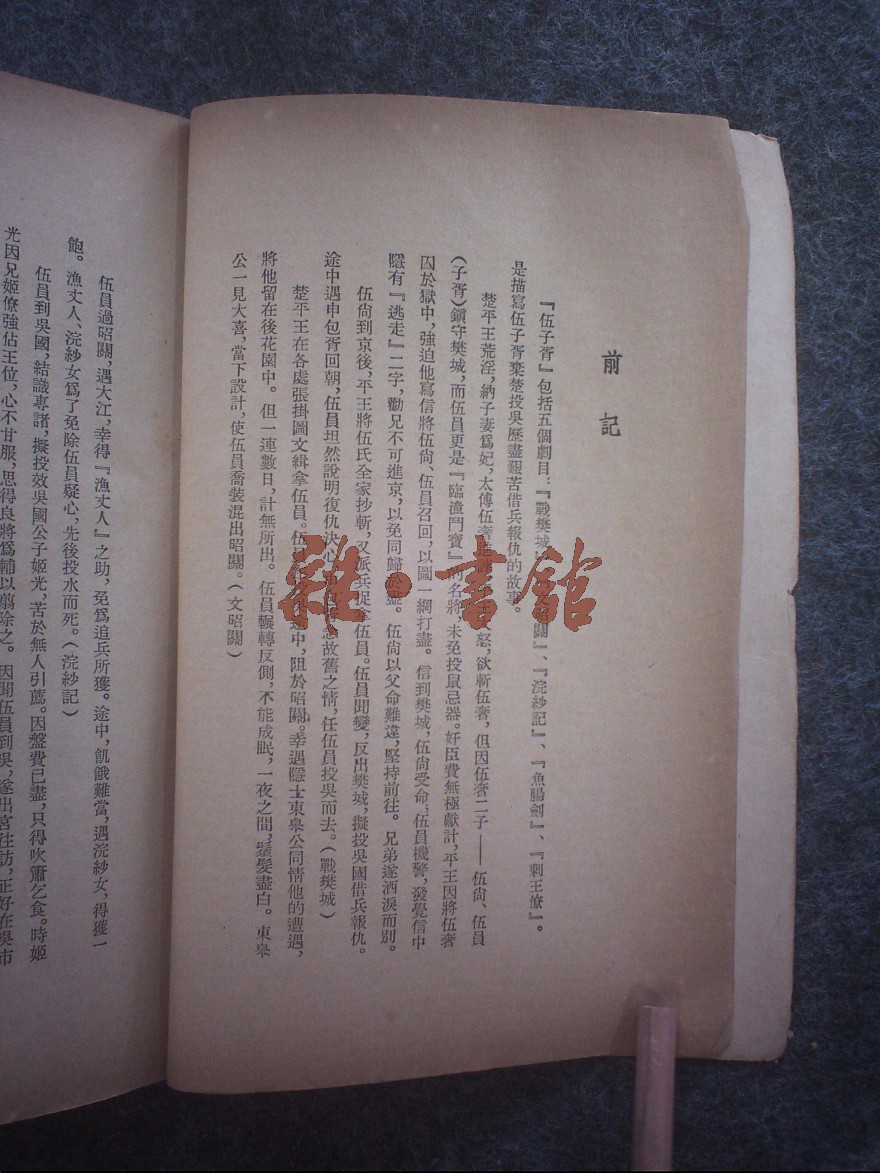 前記
『伍子胥』包括五個劇目：『戰樊城』、關』、『浣紗記』、『魚腸劍』、『刺王僚』。
是描寫伍子胥棄楚投吳歷盡艱苦借兵報仇的故事。
楚平王荒淫，納子妻爲妃，太傅伍奢怒，欲斬伍奢，但因伍奢二子——伍尙、伍員
（子胥）鎭守樊城，而伍員更是『臨潼鬥寶』的名將，未免投鼠忌器。奸臣費無極獻計，平王因將伍奢
囚於獄中，強迫他寫信將伍尙、伍員召回，以圖一網打盡。信到樊城，伍尙受命，伍員機警，發覺信中
隱有『逃走』二字，勸兄不可進京，以免同歸於盡。伍尙以父命難違，堅持前往。兄弟遂洒淚而別。
伍尙到京後，平王將伍氏全家抄斬，又派兵捉拿伍員。伍員聞變，反出樊城，擬投吳國借兵報仇。
途中遇申包胥回朝，伍員坦然說明復仇決心，故舊之情，任伍員投吳而去。（戰樊城）
楚平王在各處張掛圖文緝拿伍員。伍員中，阻於昭關。幸遇隱士東皋公同情他的遭遇，
將他留在後花園中。但一連數日，計無所出。伍員輾轉反側，不能成眠，一夜之間，鬚髮盡白。東皋
公一見大喜，當下設計，使伍員喬裝混出昭關。（文昭關）
伍員過昭關，遇大江，幸得『漁丈人』之助，免爲追兵所獲。途中，飢餓難當，遇浣紗女，得獲一
飽。漁丈人、浣紗女爲了免除伍員疑心，先後投水而死。（浣紗記）
伍員到吳國，結識專諸，擬投效吳國公子姬光，苦於無人引薦。因盤費已盡，只得吹簫乞食。時姬
光因兄姬僚強佔王位，心不甘服，思得良將爲輔以翦除之。因聞伍員到吳，遂出宮往訪，正好在吳市
雜·書館